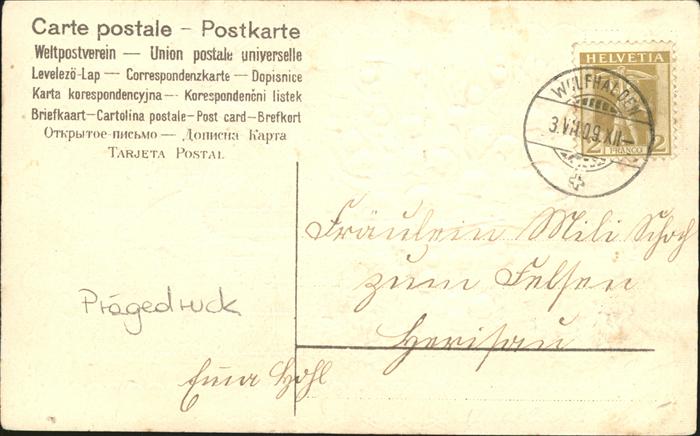 Carte postale – Postkarte
Weltpostverein — Union postale universelle
Levelező-Lap — Correspondenzkarte — Dopisnice
Karta korespondencyjna — Korespondenční listek
Briefkaart—Cartolina postale—Post card—Brefkort
Открытое-письмо — Дописна Карта
Tarjeta Postal
HELVETIA
WOLFHALDEN
3.VII.09.XII
2 FRANCO 2
Fräulein Mili Schoch
zum Felsen
Herisau
Prägedruck
Emma Hohl